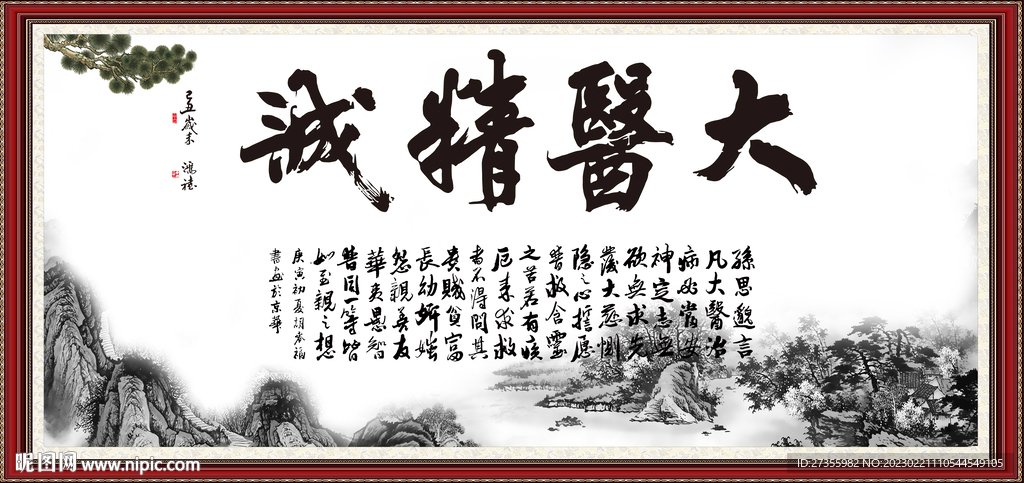 大醫精誠
孫思邈言
凡大醫治
病必當安
神定志無
欲無求先
發大慈惻
隱之心誓愿
普救含靈
之苦若有疾
厄来求救
者不得問其
貴賤貧富
長幼妍媸
怨親善友
華夷愚智
普同一等皆
如至親之想
庚寅初夏
書於京華
昵图网 www.nipic.com
ID:27355982 NO:20230221110544549105